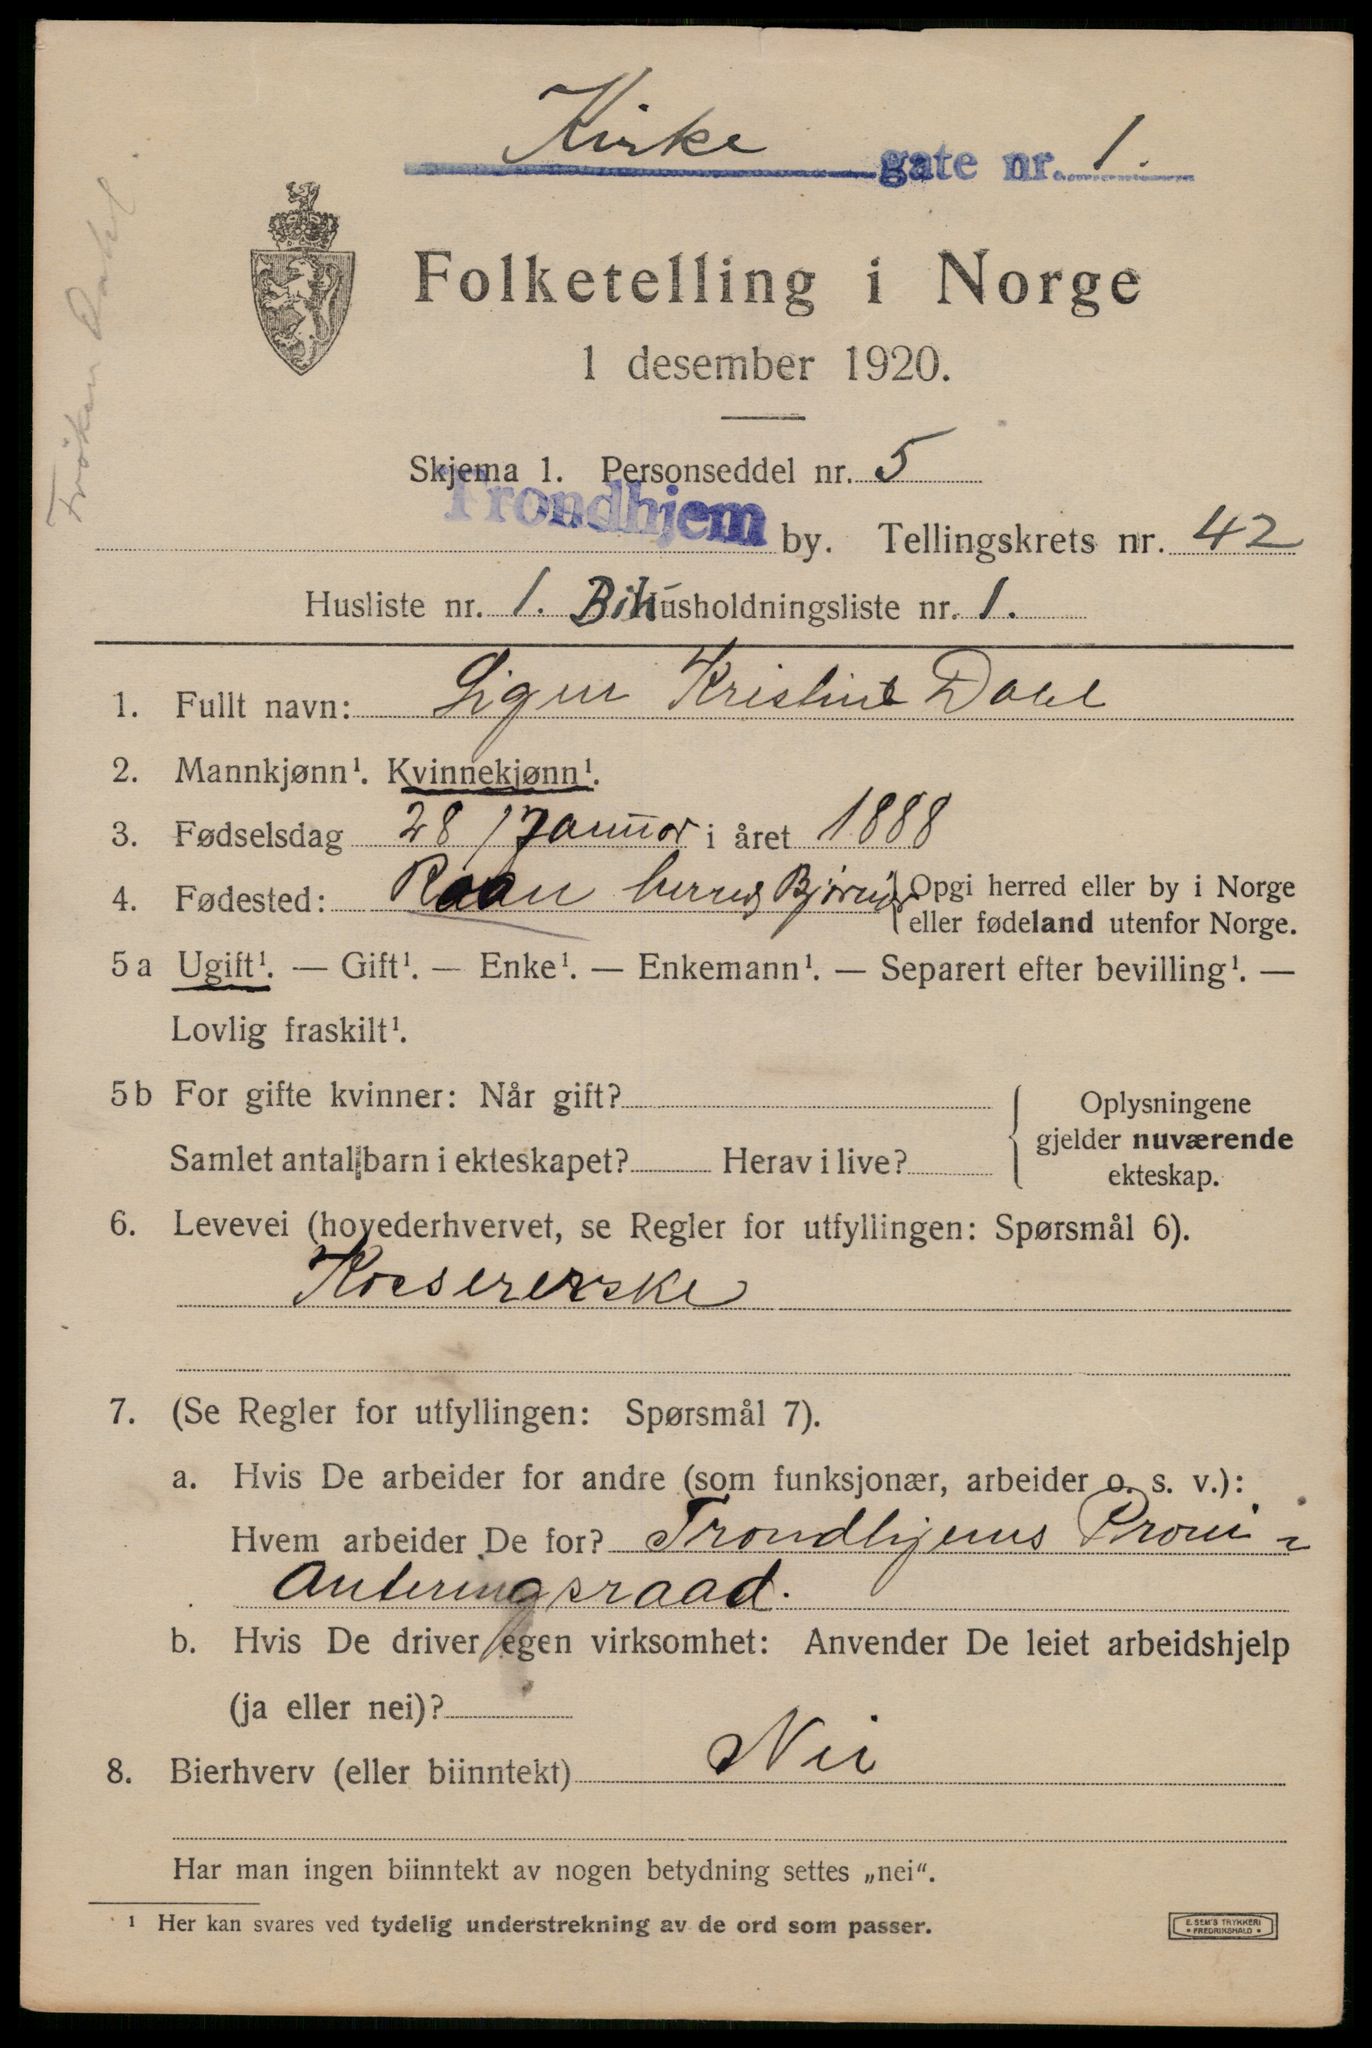 Kirke gate nr. 1.
Frøken Dahl
Folketelling i Norge
1 desember 1920.
Skjema 1. Personseddel nr. 5
Trondhjem by. Tellingskrets nr. 42
Husliste nr. 1. Bihusholdningsliste nr. 1.
1. Fullt navn: Kristine Dahl
2. Mannkjønn¹. Kvinnekjønn¹.
3. Fødselsdag 28 / Januar i året 1888
4. Fødested: herred Bjørnør { Opgi herred eller by i Norge
eller fødeland utenfor Norge.
5 a Ugift¹. — Gift¹. — Enke¹. — Enkemann¹. — Separert efter bevilling¹. —
Lovlig fraskilt¹.
5 b For gifte kvinner: Når gift?
Samlet antal barn i ekteskapet? Herav i live?
{ Oplysningene
gjelder nuværende
ekteskap.
6. Levevei (hovederhvervet, se Regler for utfyllingen: Spørsmål 6).
Kassererske
7. (Se Regler for utfyllingen: Spørsmål 7).
a. Hvis De arbeider for andre (som funksjonær, arbeider o. s. v.):
Hvem arbeider De for? Trondhjems Provi-
anteringsraad.
b. Hvis De driver egen virksomhet: Anvender De leiet arbeidshjelp
(ja eller nei)?
8. Bierhverv (eller biinntekt) Nei
Har man ingen biinntekt av nogen betydning settes „nei".
¹ Her kan svares ved tydelig understrekning av de ord som passer.
E. SEM'S TRYKKERI
• FREDRIKSHALD •